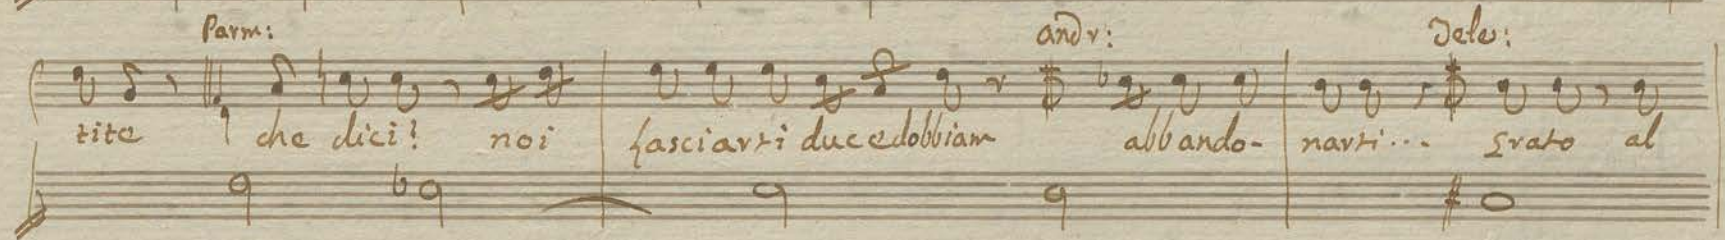 Parm: andr: Dele:
tite che dici? noi lasciarti duce dobbiam abbando- narti... grato al